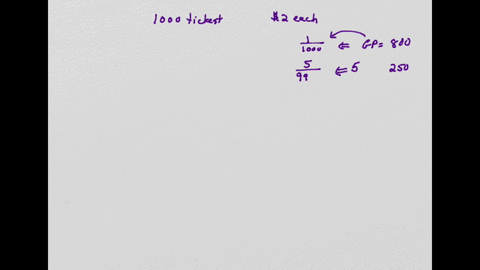 1000 tickest $2 each
1/1000 ⇐ GP = 800
5/99 ⇐ 5 250